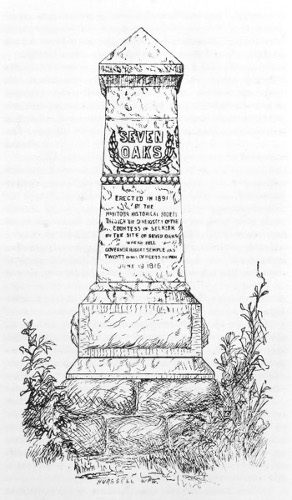 SEVEN
OAKS
ERECTED IN 1891
BY THE
MANITOBA HISTORICAL SOCIETY
THROUGH THE GENEROSITY OF THE
COUNTESS OF SELKIRK
ON THE SITE OF SEVEN OAKS
WHERE FELL
GOVERNOR ROBERT SEMPLE AND
TWENTY OF HIS OFFICERS AND MEN
JUNE 19 1816